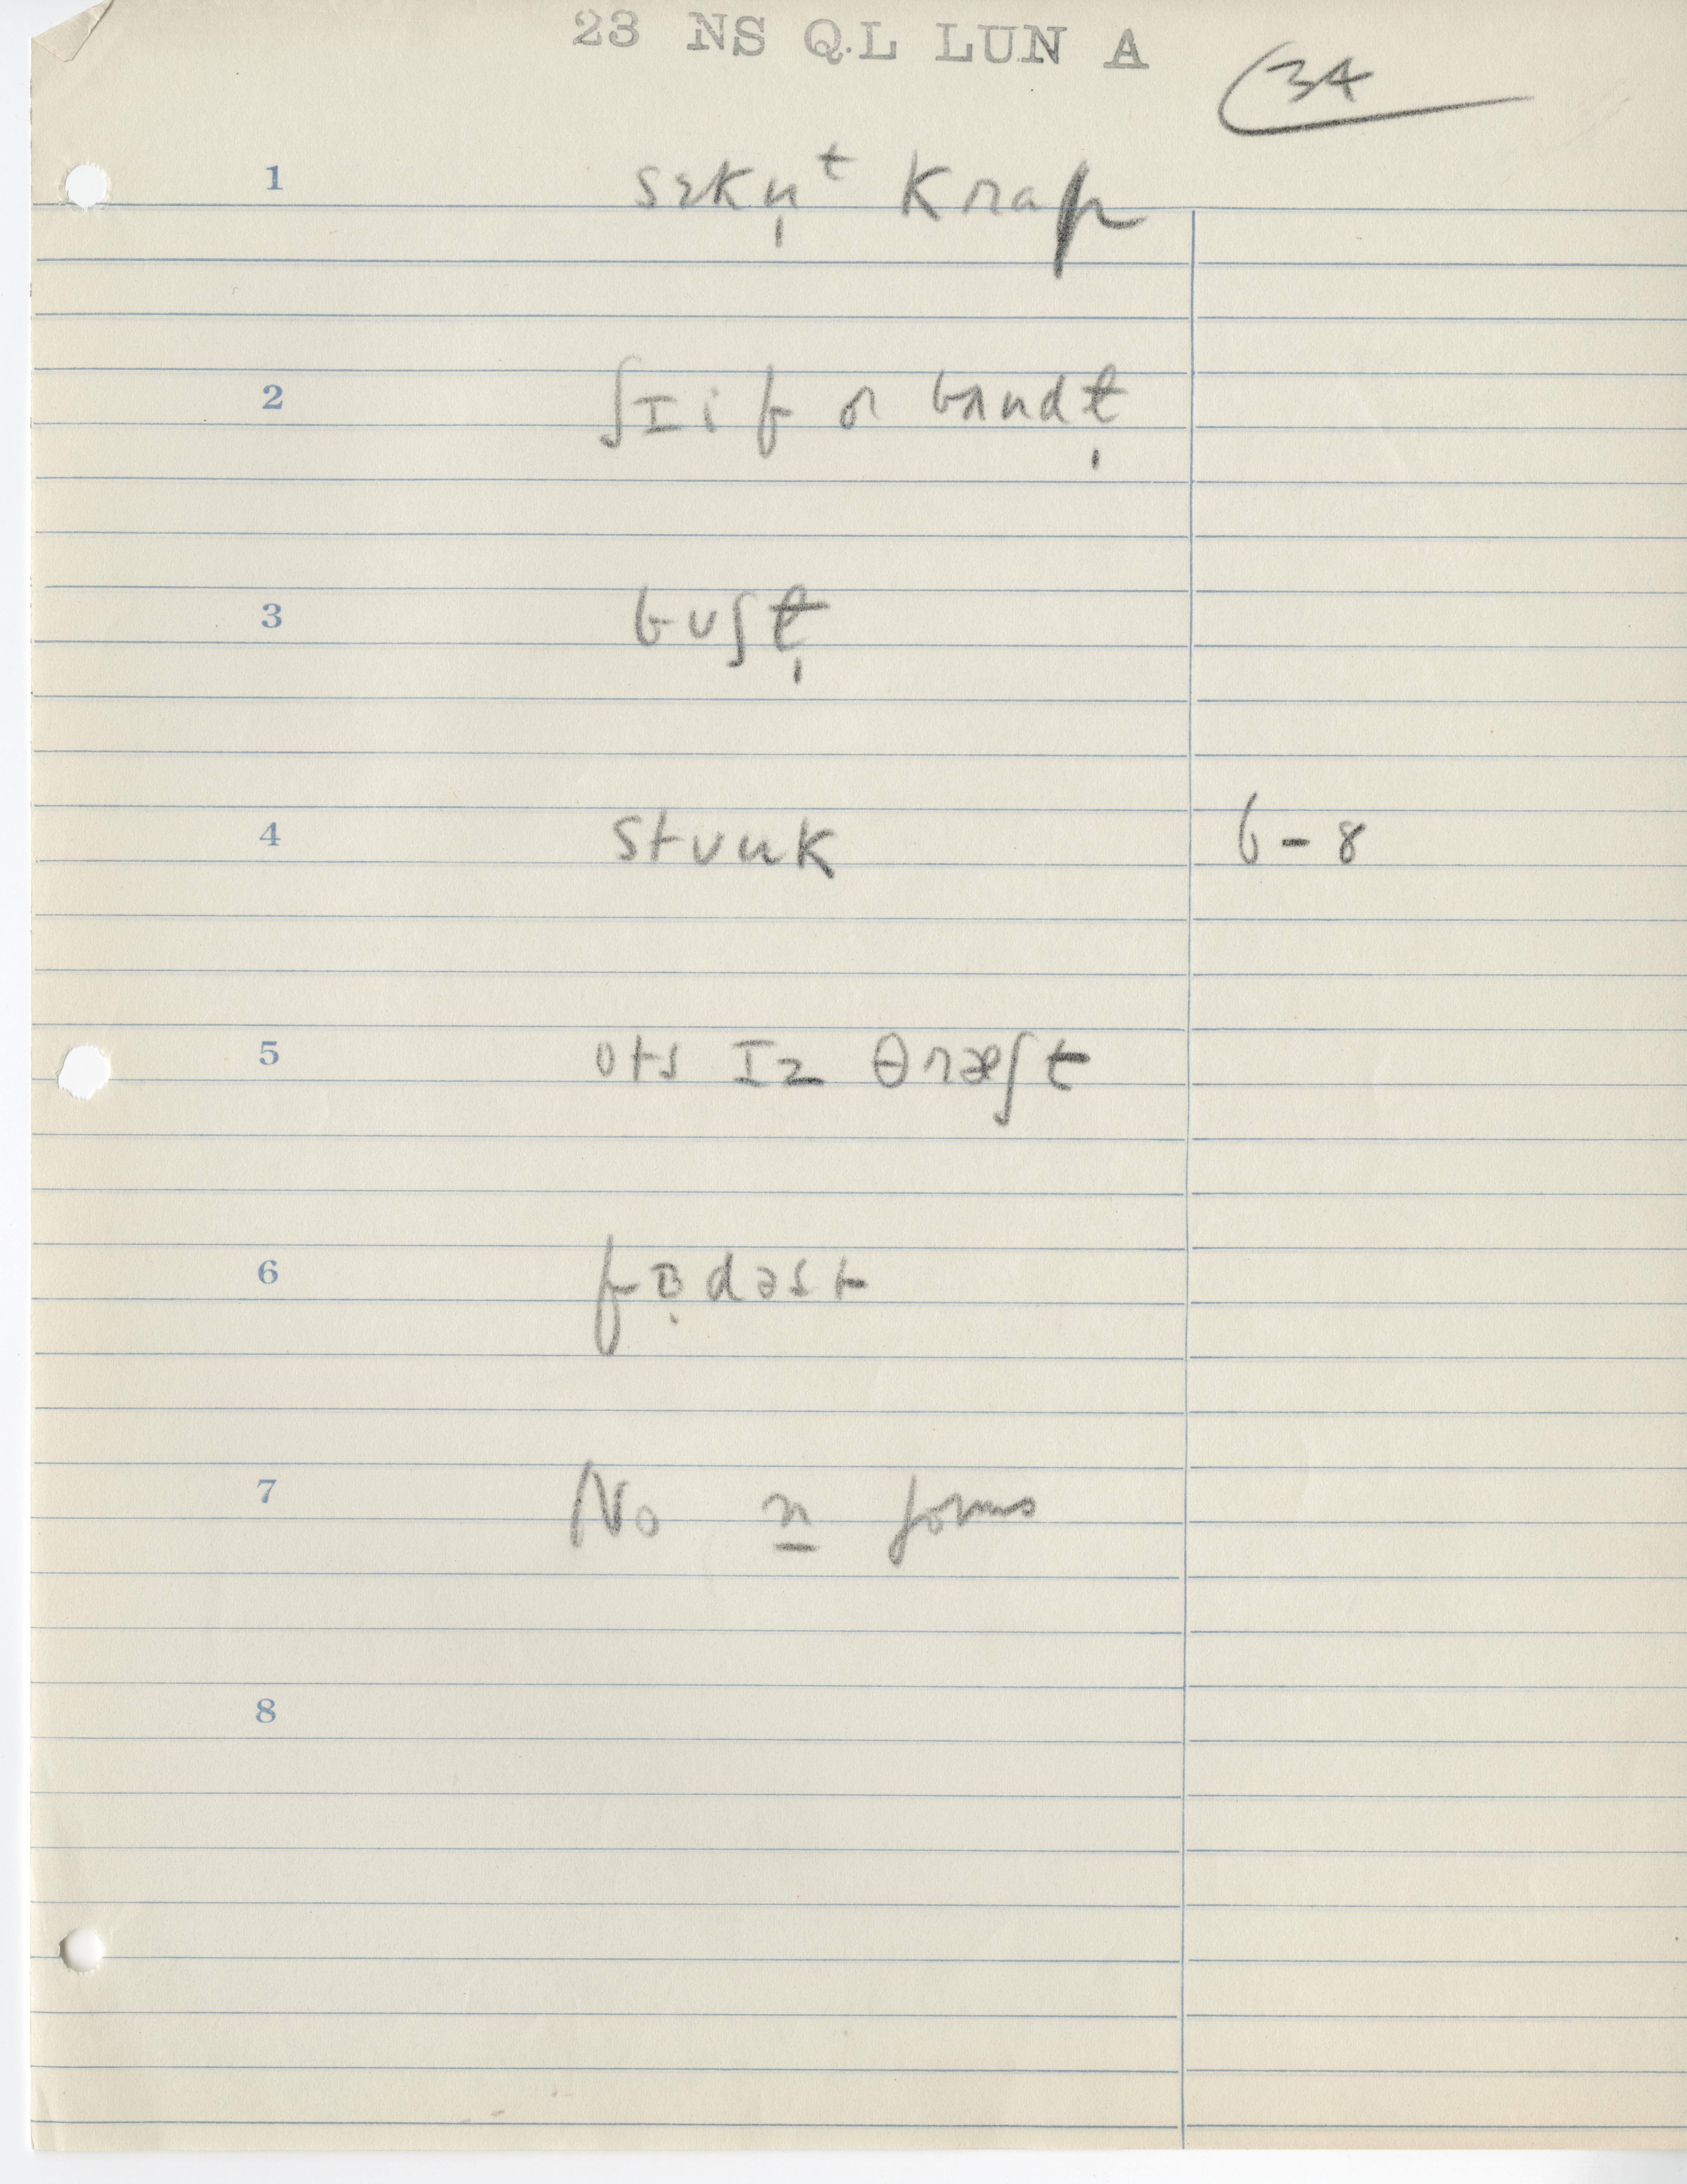 23 NS Q.L LUN A
34
1 sɛkn̩ᵗ krap
2 ʃIif ɒ bʌndt̩
3 bʊʃt̩
4 stʊnk 6-8
5 ots Iz θræʃt
6 fɒ̣dəst
7 No n forms
8